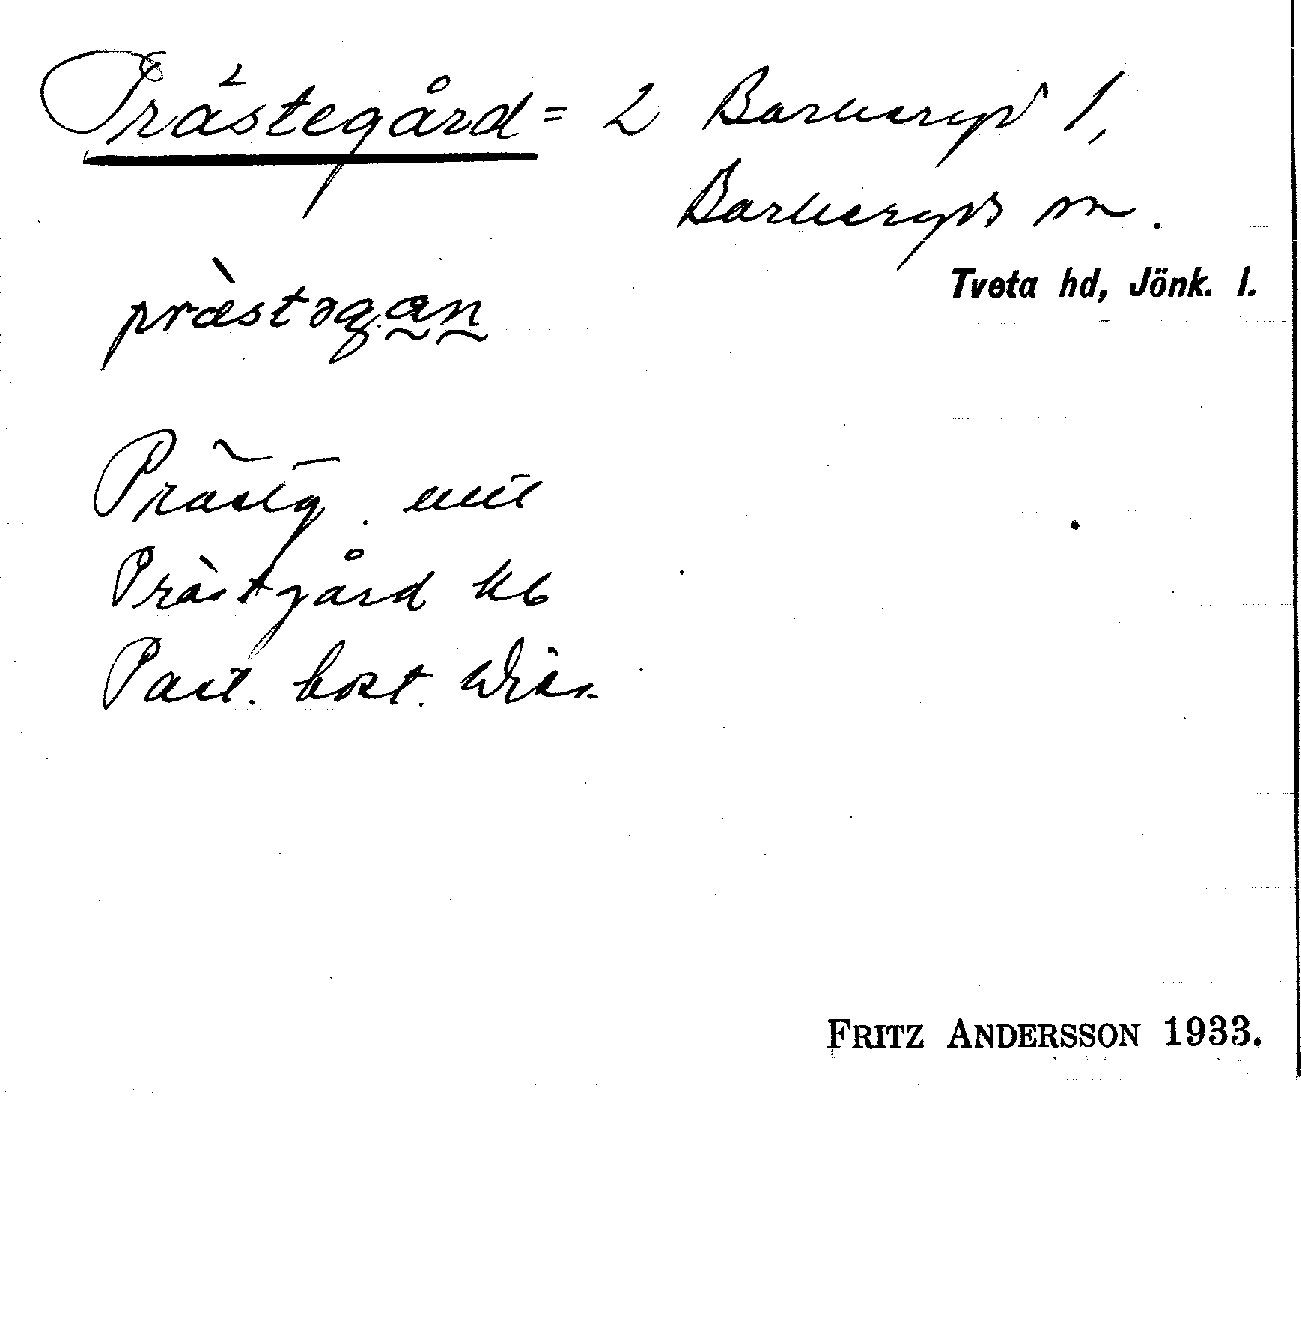 Prästegård = 2 Barkeryd 1,
Barkeryds sn.
Tveta hd, Jönk. l.
præ̀stəgan
Prästg.
Prästgård kb
Past. bost.
FRITZ ANDERSSON 1933.